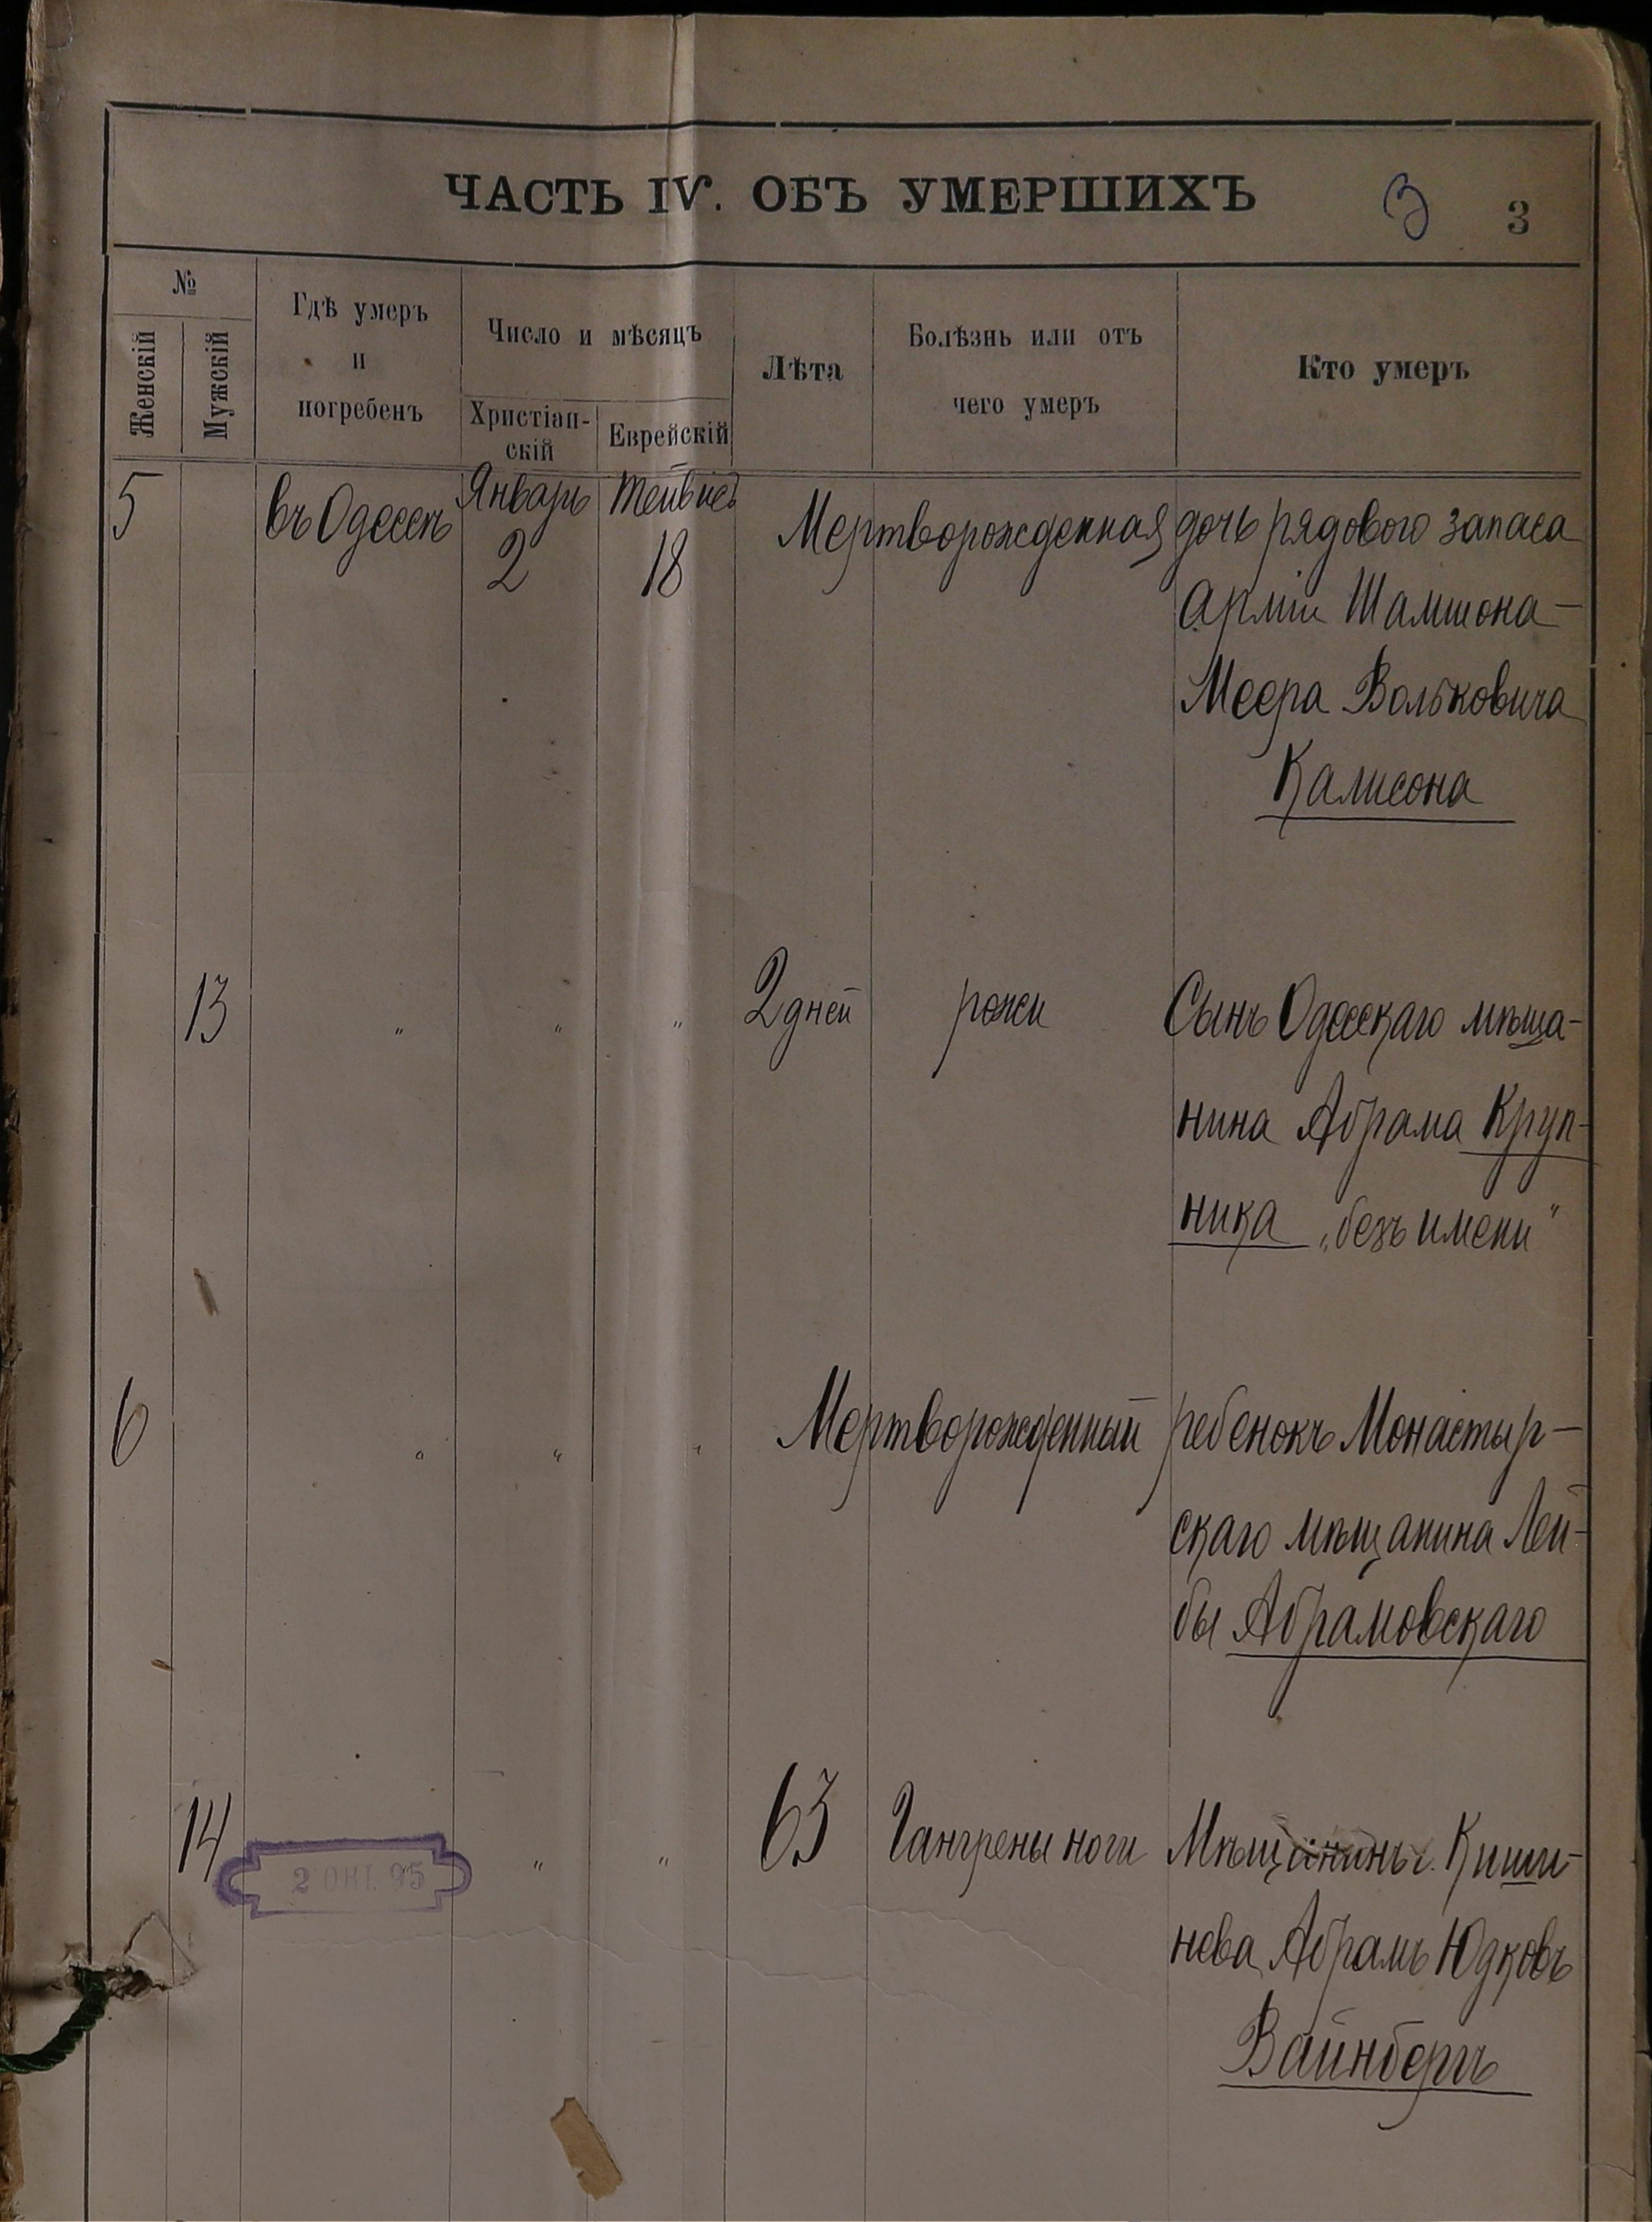 ЧАСТЬ IV. ОБЪ УМЕРШИХЪ
3 3
№
Женскій
Мужскій
Гдѣ умеръ
и
погребенъ
Число и мѣсяцъ
Христіан-
скій
Еврейскій
Лѣта
Болѣзнь или отъ
чего умеръ
Кто умеръ
5 въ Одессѣ Январь Тейвисъ Мертворожденная дочь рядового запаса
2 18
арміи Шамшона-
Меера Вольковича
Калмсона
13 " " " 2 дней рожи Сынъ Одесскаго мѣща-
нина Абрама Круп-
ника „безъ имени"
6 " " " Мертворожденный ребенокъ Монастыр-
скаго мѣщанина Лей-
бы Абрамовскаго
14 " " " 63 Гангрены ноги Мѣщанинъ г. Киши-
2 ОКТ. 95
нева Абрамъ Юдковъ
Вайнбергъ